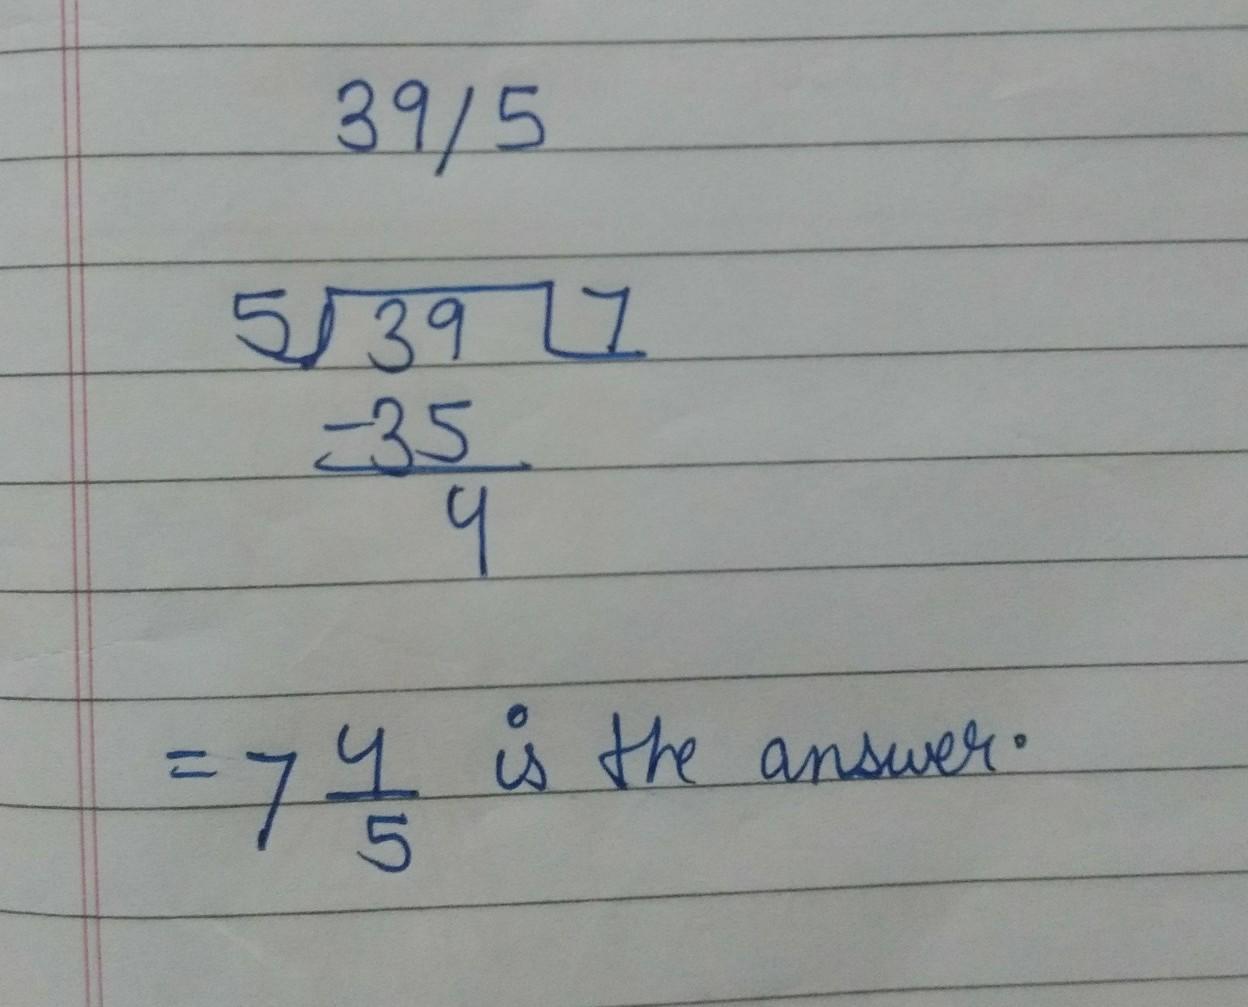 39/5
5)39(7
-35
4
= 7 4/5 is the answer.